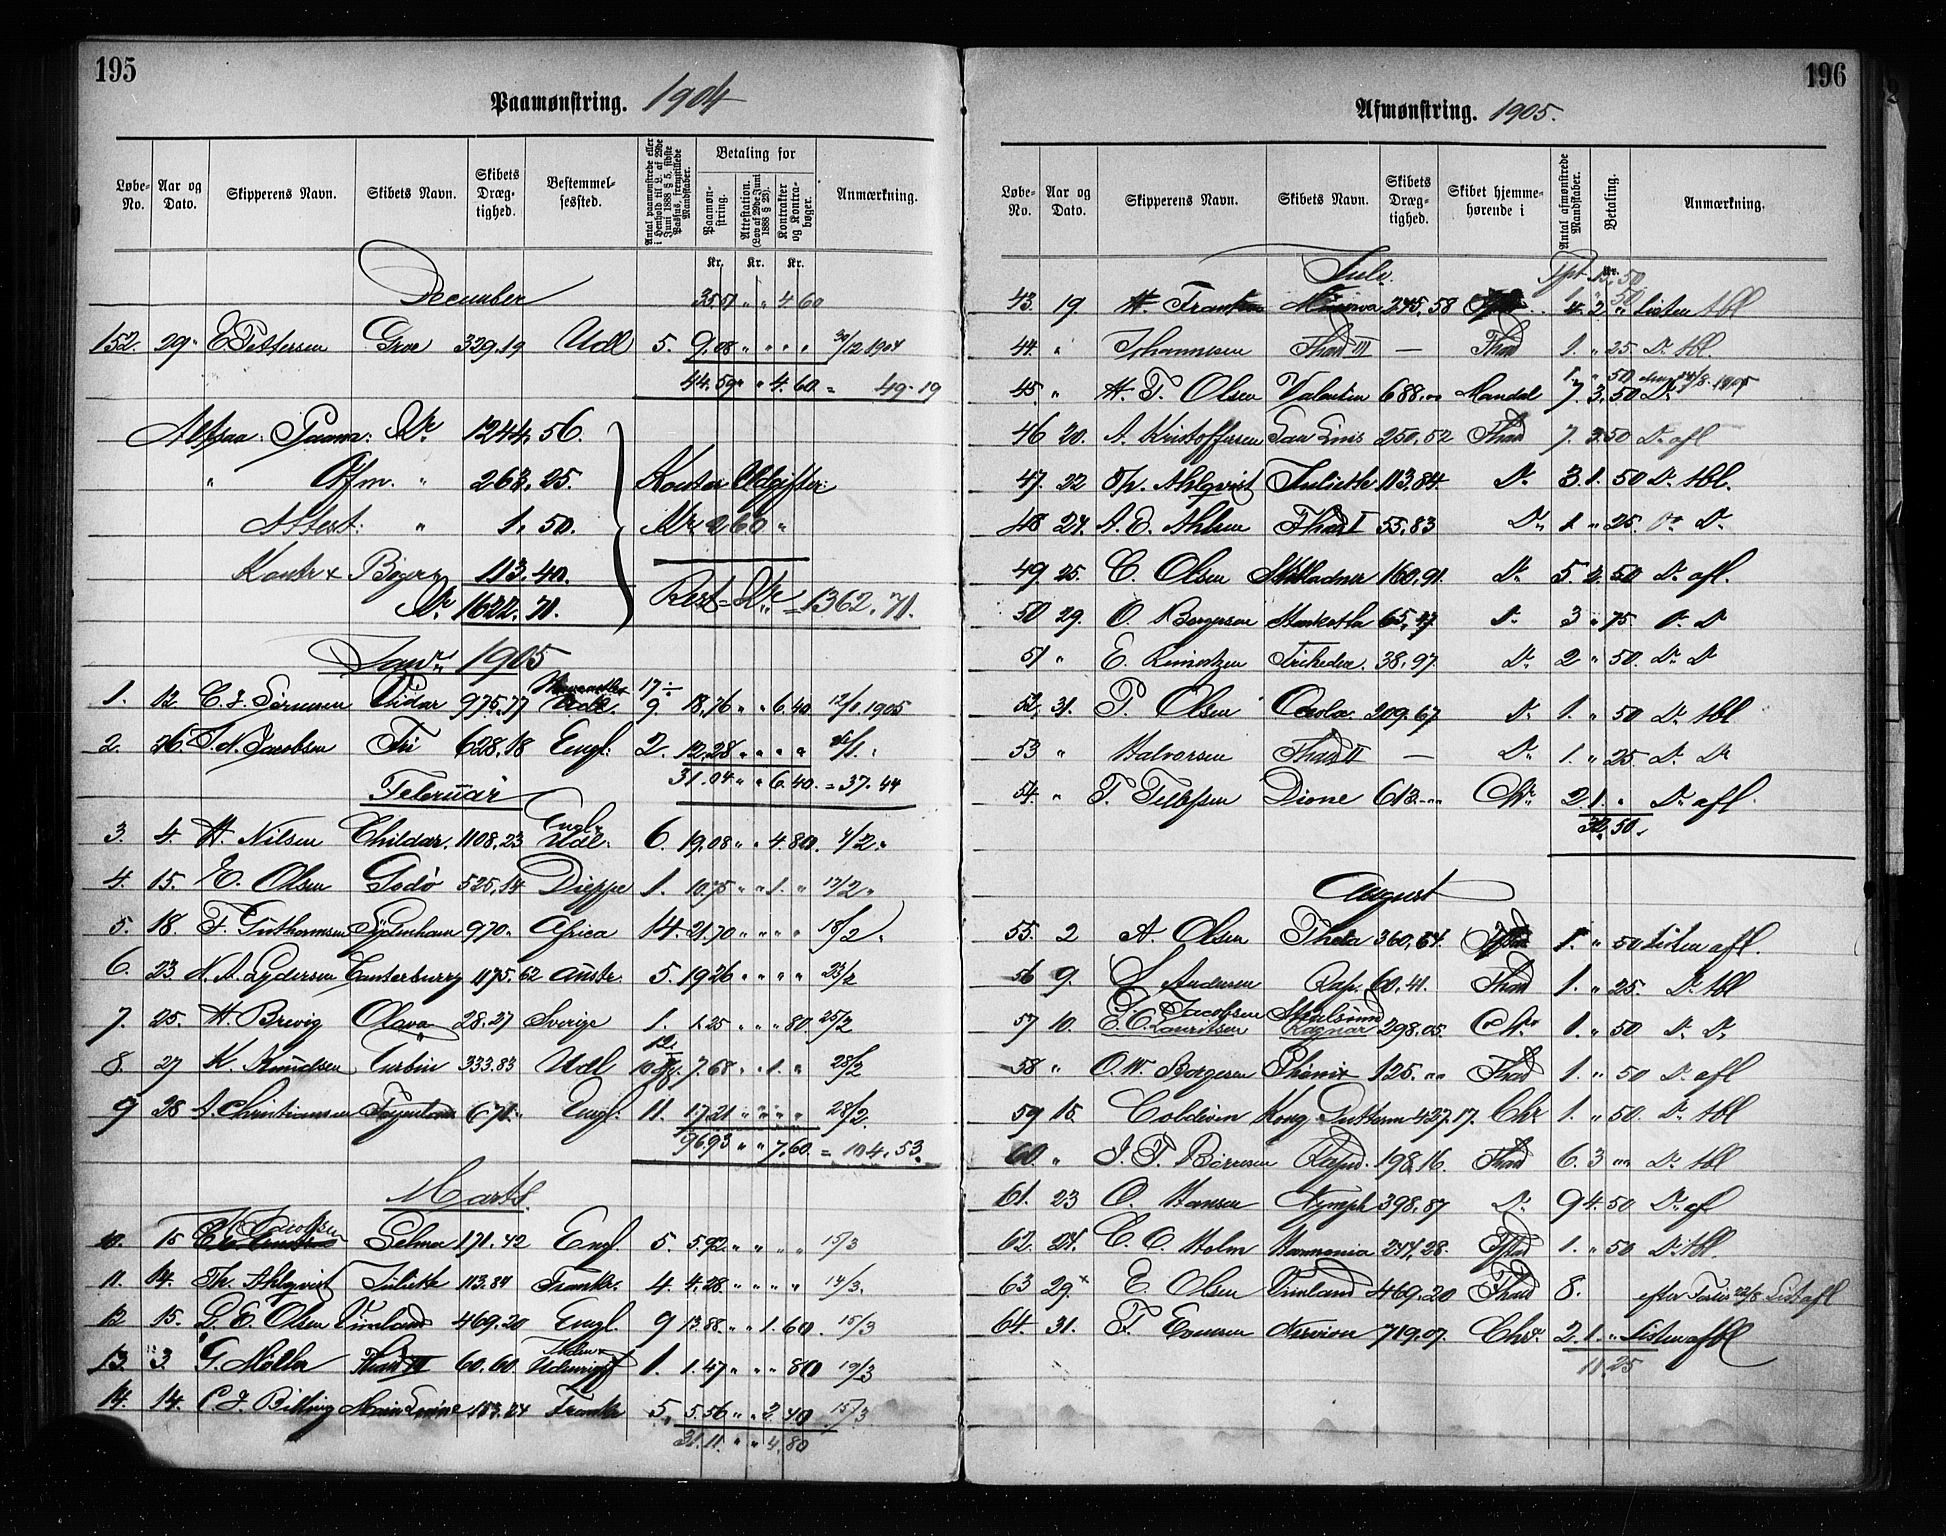 195
Paamønstring. 1904
Løbe-No. | Aar og Dato. | Skipperens Navn. | Skibets Navn. | Skibets Dræg-tighed. | Bestemmel-sessted. | Antal paamønstrede eller i Henhold til L. af 22de Juni 1888 § 5, sidste Passus, fremstillede Mandskaber. | Betaling for | Paamøn-string. | Attestation. (Lov af 22de Juni 1888 § 28). | Kontrakter og Kontra-bøger. | Anmærkning.
Kr. Kr. Kr.
December 35 51 " " 4.60
152. 29 E Pettersen Groe 329.19 Udl 5. 9.08 " " " " 30/12 1904
44.59 " " 4.60 = 49.19
Altsaa: Paam: Kr 1244,56.
" Afm. " 263,25. Kontor Udgifter:
Attest: " 1,50. Kr 260 "
Kontr x Bøger " 113.40.
Kr 1622.71. Rest = Kr = 1362.71.
Janr. 1905
1. 12 C. J. Sørensen Vidar 975.77 Udl. 17 ÷ 9. 18,76 " " 6.40 12/1 1905
2. 26. J. N. Jacobsen Fri 628.18 Engl: 2. 12,28 " " " " 26/1. "
31.04 " " 6.40. = 37.44
Februar
3. 4. H. Nilsen Childar. 1108,23 Engl. Udl. 6. 19,08 " " 4.80. 4/2 "
4. 15. E. Olsen Godø 525,14 Dieppe 1. 10.75 " " 1. " 17/2 "
5. 18. F. Guthormsen Sydenham 970. Africa 14. 21.70 " " " " 18/2 "
6. 23. N. A. Lydersen Canterburry 1175.62 Austr. 5. 19.26 " " " " 23/2
7. 25. H. Brevig Olava 28.27 Sverige 1. 1.25 " " " 80 25/2
8. 27 K. Knudsen Turbin 333.83 Udl 10 7.68 " " 1. " 28/2
9 28 A. Christiansen 671. Engl: 11. 17.21 " " " " 28/2.
96.93 " " 7.60. = 104.53.
Marts.
10. 15 Jacobsen Selma 171.42 Engl. 5. 5.92 " " " " 15/3
11. 14. Th. Ahlqvist Juliette 113.84 Frankr. 4. 4.28 " " " " 14/3.
12 15. L. E. Olsen Vineland 469.20 Engl. 9 13.88. " " 1.60. 15/3
13. 3. G. Møller Thad III 60.60. Udenrigsf 1. 1.47 " " " 80 19/3
14. 14. C. J. Billing 113.24 Frankr 5. 5.56 " " 2.40 15/3
31.11. " " 4.80
196
Afmønstring. 1905.
Løbe-No. | Aar og Dato. | Skipperens Navn. | Skibets Navn. | Skibets Dræg-tighed. | Skibet hjemme-hørende i | Antal afmønstrede Mandskaber. | Betaling. | Anmærkning.
Juli.
43. 19. H. Frantsen Minerva 245,58 4. 2 " Listen tbl
44. " Johannesen Thad III — Thad 1. " 25. Do tbl.
45. " H. T. Olsen Valentin 688." Mandal 7. 3.50 Do
46 20. A. Kristoffersen San Luis 250,52 Thad 7. 3.50 Do afl
47. 22 Th. Ahlqvist Juliette 113,84. Do 3. 1. 50 Do tbl.
48 24. A. E. Ahlsen Thad I 55,83 Do 1. " 25. Do Do
49 25. C. Olsen Skladner 160,91. Do 5. 2. 50 Do afl.
50 29. O. Bergersen 65,47 Do 3 " 75 Do Do
51 " E. Reinertzen 38,97. Do 2 " 50. Do Do
52. 31. P. Olsen Oceola. 209.67 Do 1. " 50 Do tbl
53 " Halvorsen Thad II — Do 1. " 25. Do Do
54. " T. Tellefsen Dione 613." Chr. 2. 1. " Do afl.
32,50.
August
55. 2 A. Olsen Theta 360,64. 1. " 50 Listen afl.
56 9. S. Andersen Rap. 60,41. Thad 1. " 25. Do tbl
57 10. G. Jacobsen E. C. Lauritsen Ragnar 298.05. Chr 1. " 50 Do Do
58 " O. W. Borgersen Phønix 125." Thad 1. " 50 Do afl
59 15. Coldevin Kong Guttorm 427.17. Chr 1. " 50. Do tbl
60. " J. T. Børresen Rapid. 198,16. Thad 6. 3 " Do tbl
61. 23 O. Hansen Nymph 398,87 Do 9 4.50 Do afl
62. 24. C. O. Holm Harmonia 244,28. 1. " 50 Do tbl.
63 29 x E. Olsen Vinland 469.20 Thad 8. efter Taus 22/8 List afl
64. 31. T. Evensen 719.07. Chr. 2. 1. " Listen afbl
11.25